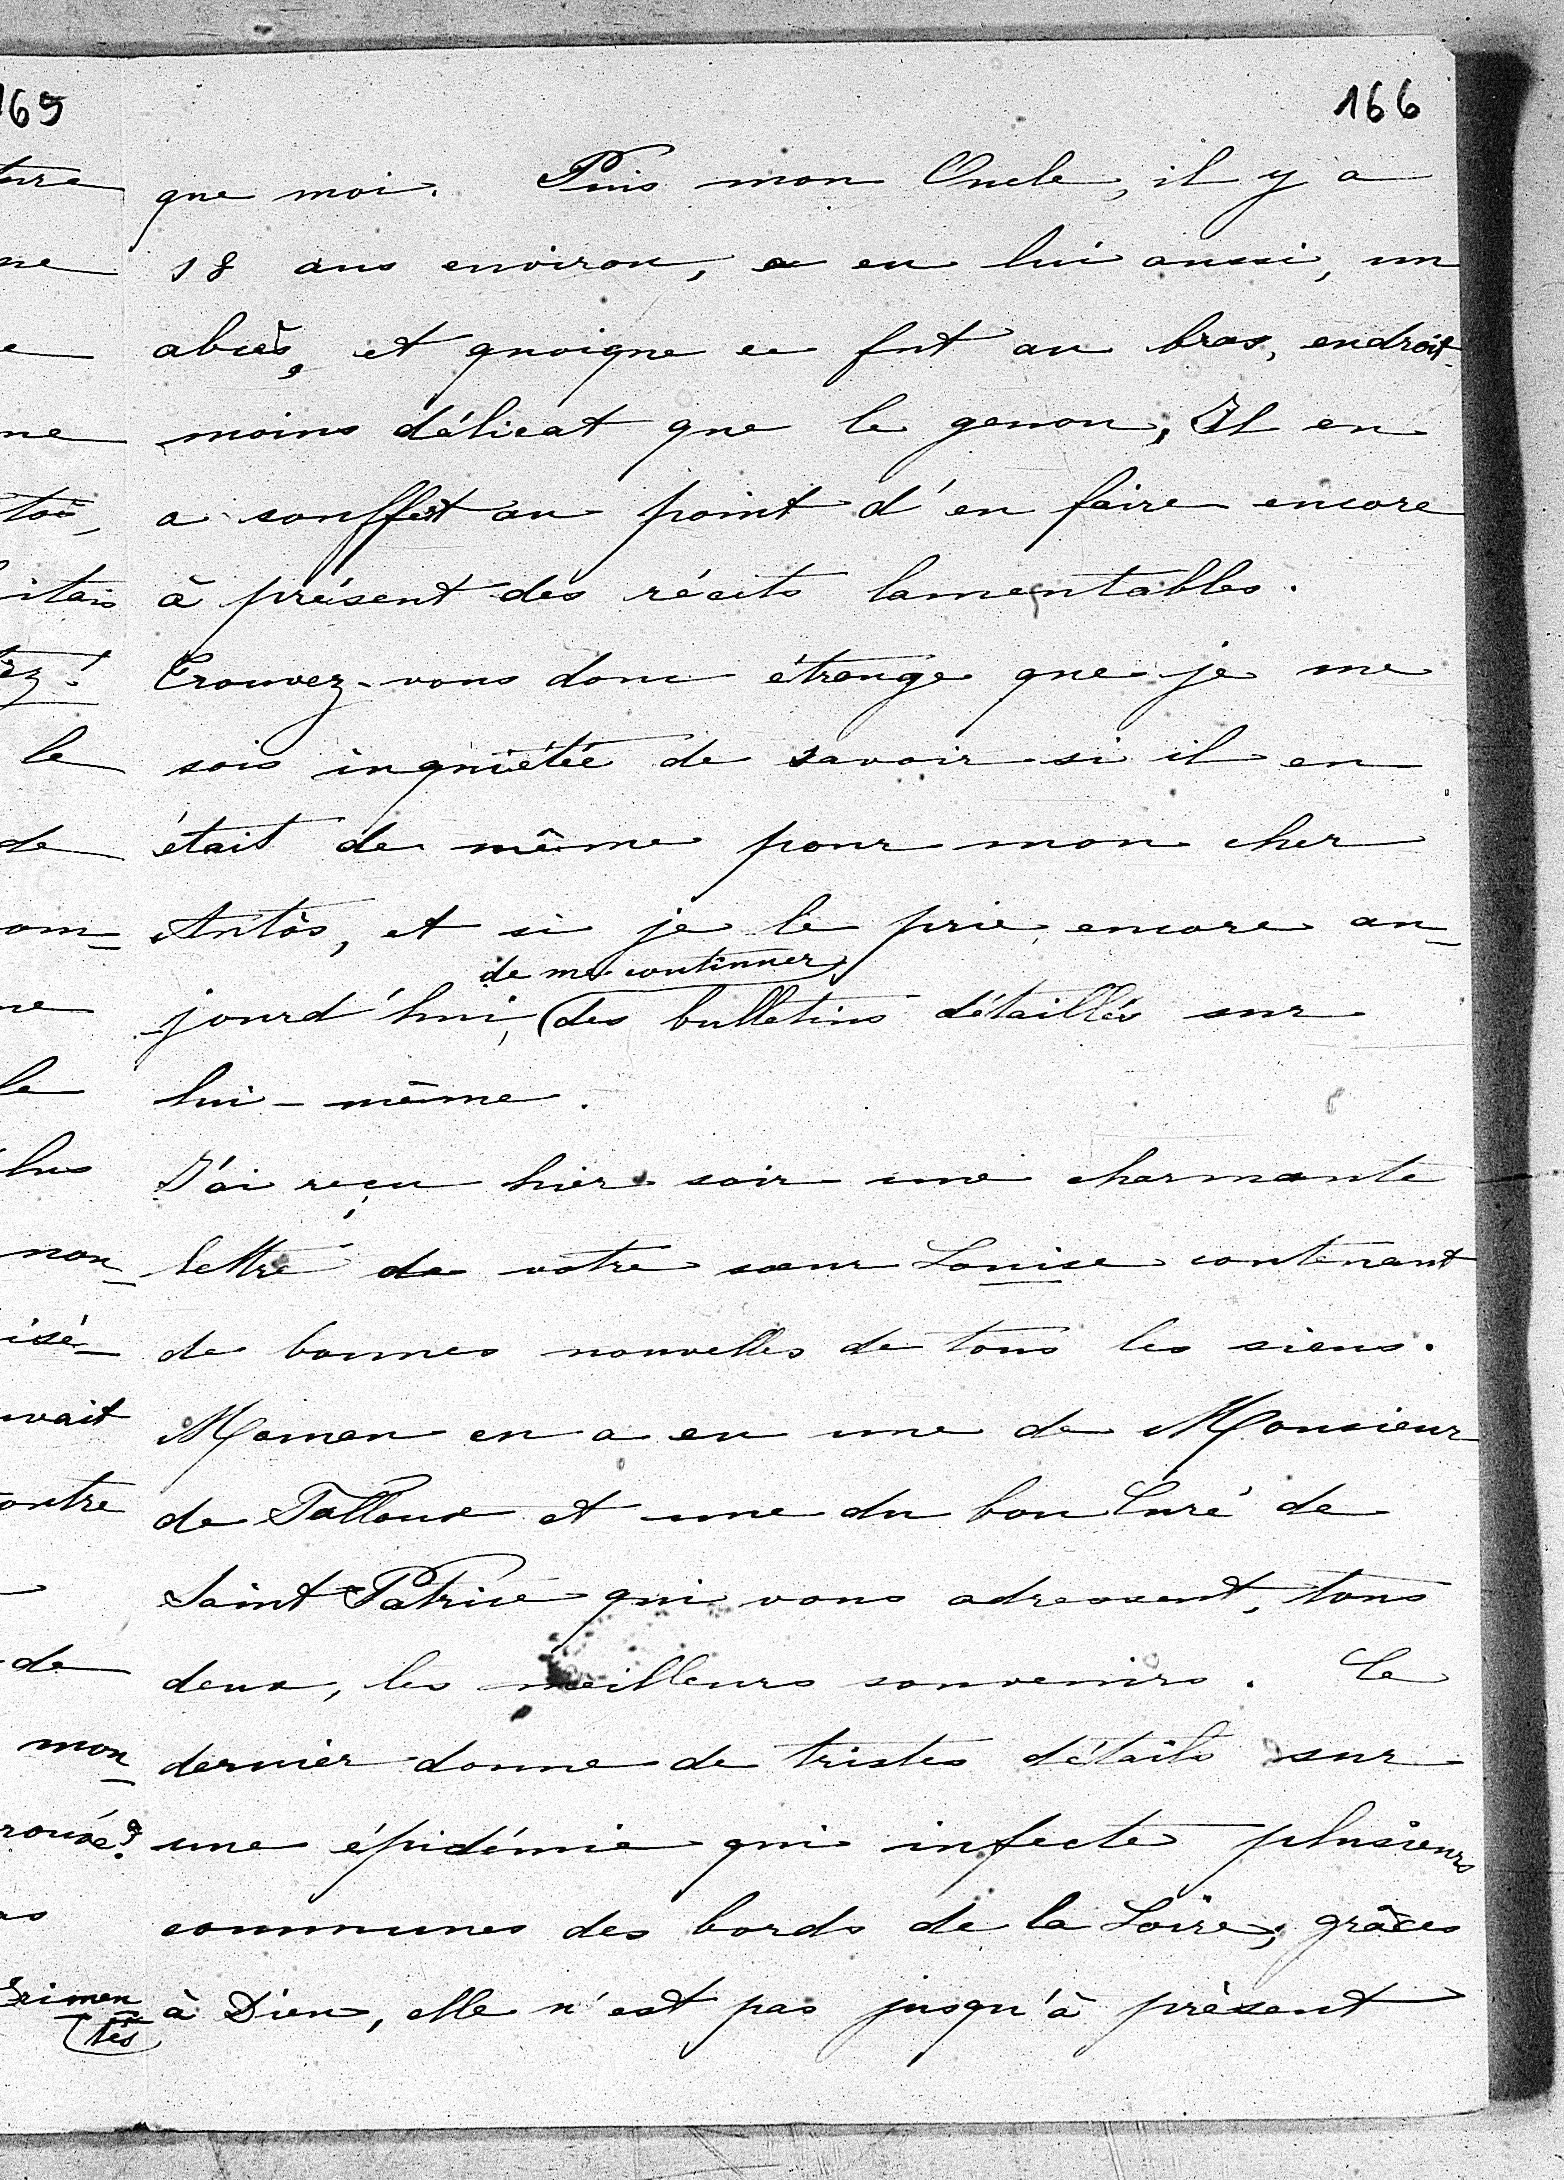 165
166
que moi. Puis mon Oncle, il y a
18 ans environ, a eu lui aussi, un
abcès, et quoique ce fut au bras, endroit
moins délicat que le genou, Il en
a souffert au point d'en faire encore
à présent des récits lamentables.
Trouvez-vous donc étrange que je me
sois inquiétée de savoir si il en
était de même pour mon cher
Antôs, et si je le prie encore au-
de me continuer
jourd'hui, des bulletins détaillés sur
lui-même.
J'ai reçu hier soir une charmante
lettre de votre sœur Louise contenant
de bonnes nouvelles de tous les siens.
Maman en a eu une de Monsieur
de Falloux et une du bon Curé de
Saint Patrice qui vous adressent, tous
deux, les meilleurs souvenirs. Ce
dernier donne de tristes détails sur
une épidémie qui infecte plusieurs
communes des bords de la Loire; grâces
à Dieu, elle n'est pas jusqu'à présent